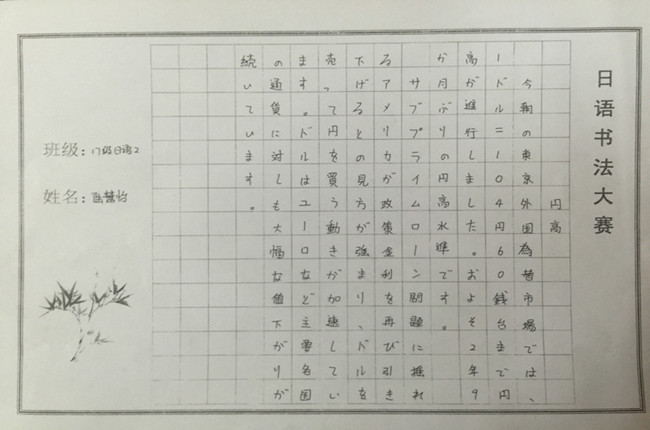 日语书法大赛
円高
今朝の東京外国為替市場では、
1ドル=104円60銭台まで円
高が進行しました。およそ2年9
か月ぶりの円高水準です。
サブプライムローン問題に揺れ
るアメリカの政策金利を再び引き
下げるとの見方が強まり、ドルを
売って円を買う動きが加速してい
ます。ドルはユーロなど主要各国
の通貨に対しても大幅な値下がりが
続いています。
班级:17级日语2
姓名: